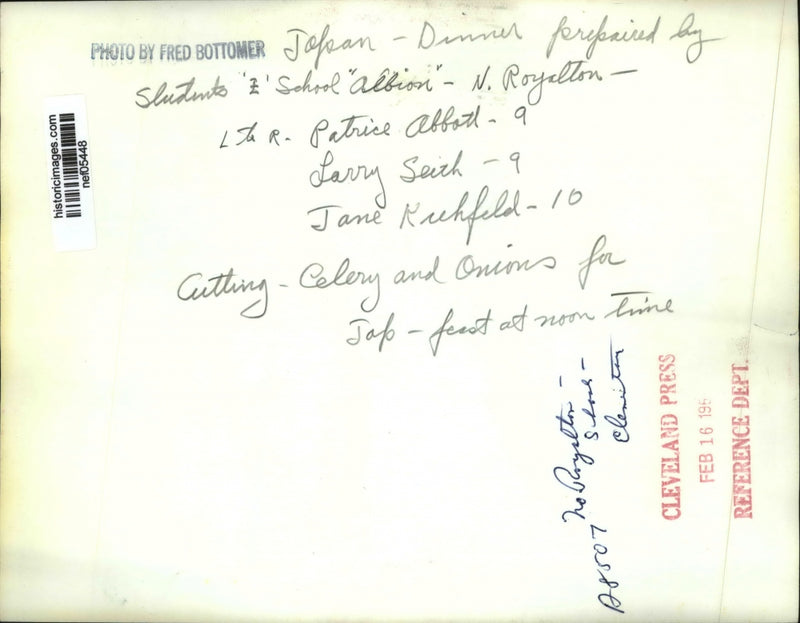 PHOTO BY FRED BOTTOMER
Japan - Dinner prepaired by
Students 'E' School "Albion" - N. Royalton -
L to R. Patrice Abbott - 9
Larry Seith - 9
Jane Kuhfeld - 10
Cutting - Celery and Onions for
Jap - feast at noon time
historicimages.com
nef05448
No Royalton -
School -
CLEVELAND PRESS
FEB 16 195
REFERENCE DEPT.